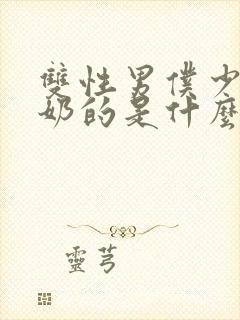 雙性男僕少
奶的是什麼
靈芎